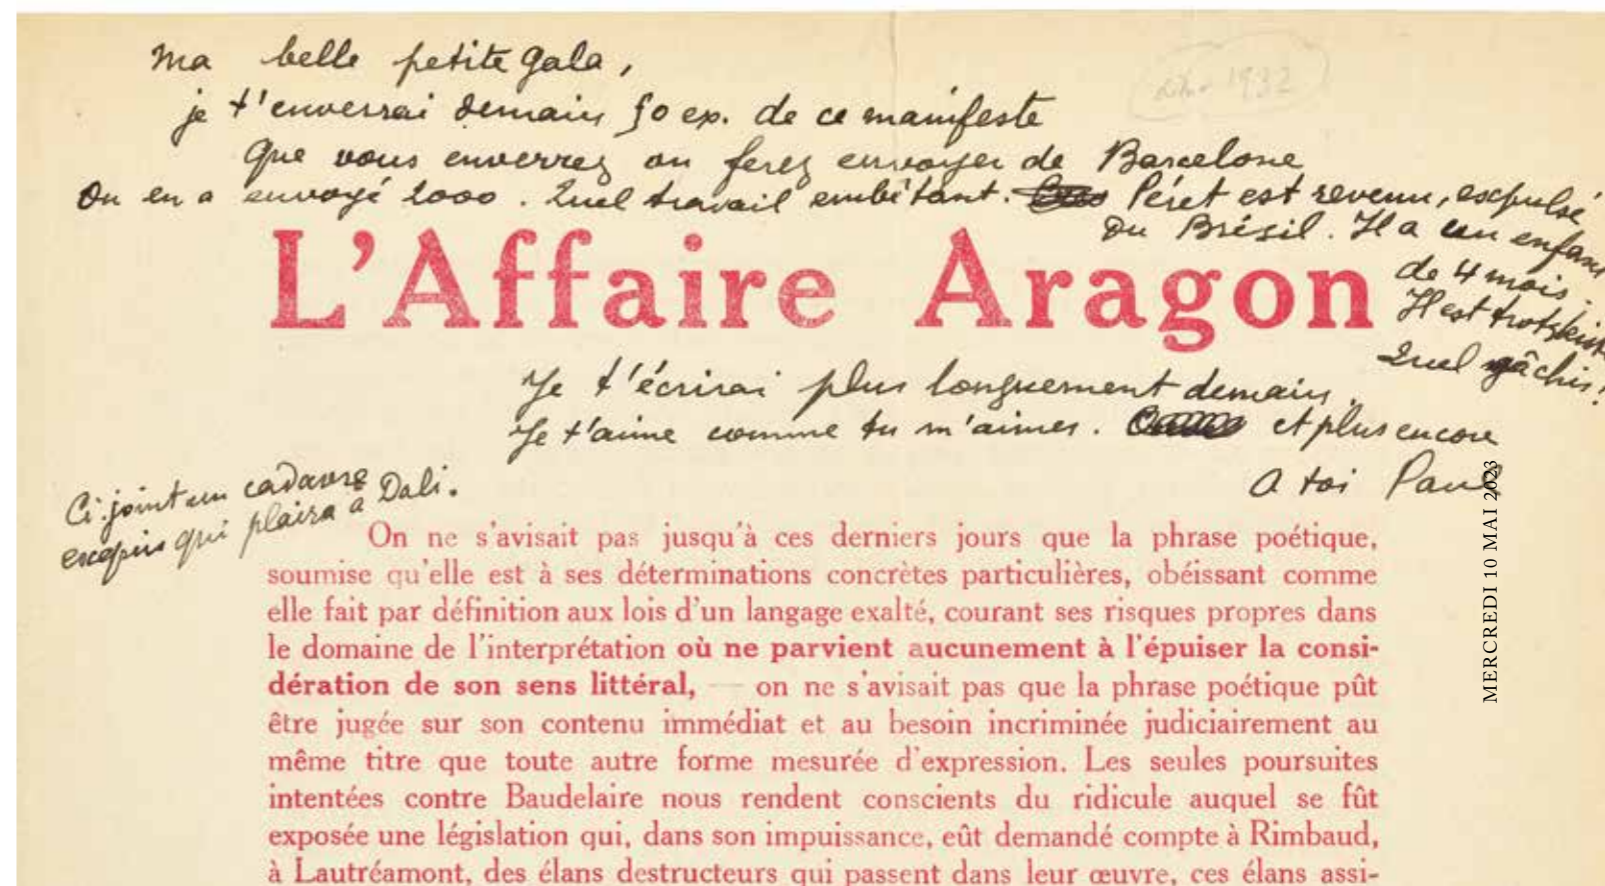 ma belle petite Gala,
je t'enverrai demain 50 ex. de ce manifeste
que vous enverrez ou ferez envoyer de Barcelone
On en a envoyé 2000. Quel travail embêtant. Péret est revenu, expulsé
du Brésil. Il a un enfant
de 4 mois.
Il est trotzkiste
Quel gâchis!
1932
L'Affaire Aragon
Je t'écrirai plus longuement demain.
Je t'aime comme tu m'aimes. et plus encore
A toi Paul
Ci-joint un cadavre
exquis qui plaira à Dali.
On ne s'avisait pas jusqu'à ces derniers jours que la phrase poétique,
soumise qu'elle est à ses déterminations concrètes particulières, obéissant comme
elle fait par définition aux lois d'un langage exalté, courant ses risques propres dans
le domaine de l'interprétation où ne parvient aucunement à l'épuiser la consi-
dération de son sens littéral, — on ne s'avisait pas que la phrase poétique pût
être jugée sur son contenu immédiat et au besoin incriminée judiciairement au
même titre que toute autre forme mesurée d'expression. Les seules poursuites
intentées contre Baudelaire nous rendent conscients du ridicule auquel se fût
exposée une législation qui, dans son impuissance, eût demandé compte à Rimbaud,
à Lautréamont, des élans destructeurs qui passent dans leur œuvre, ces élans assi-
MERCREDI 10 MAI 2023